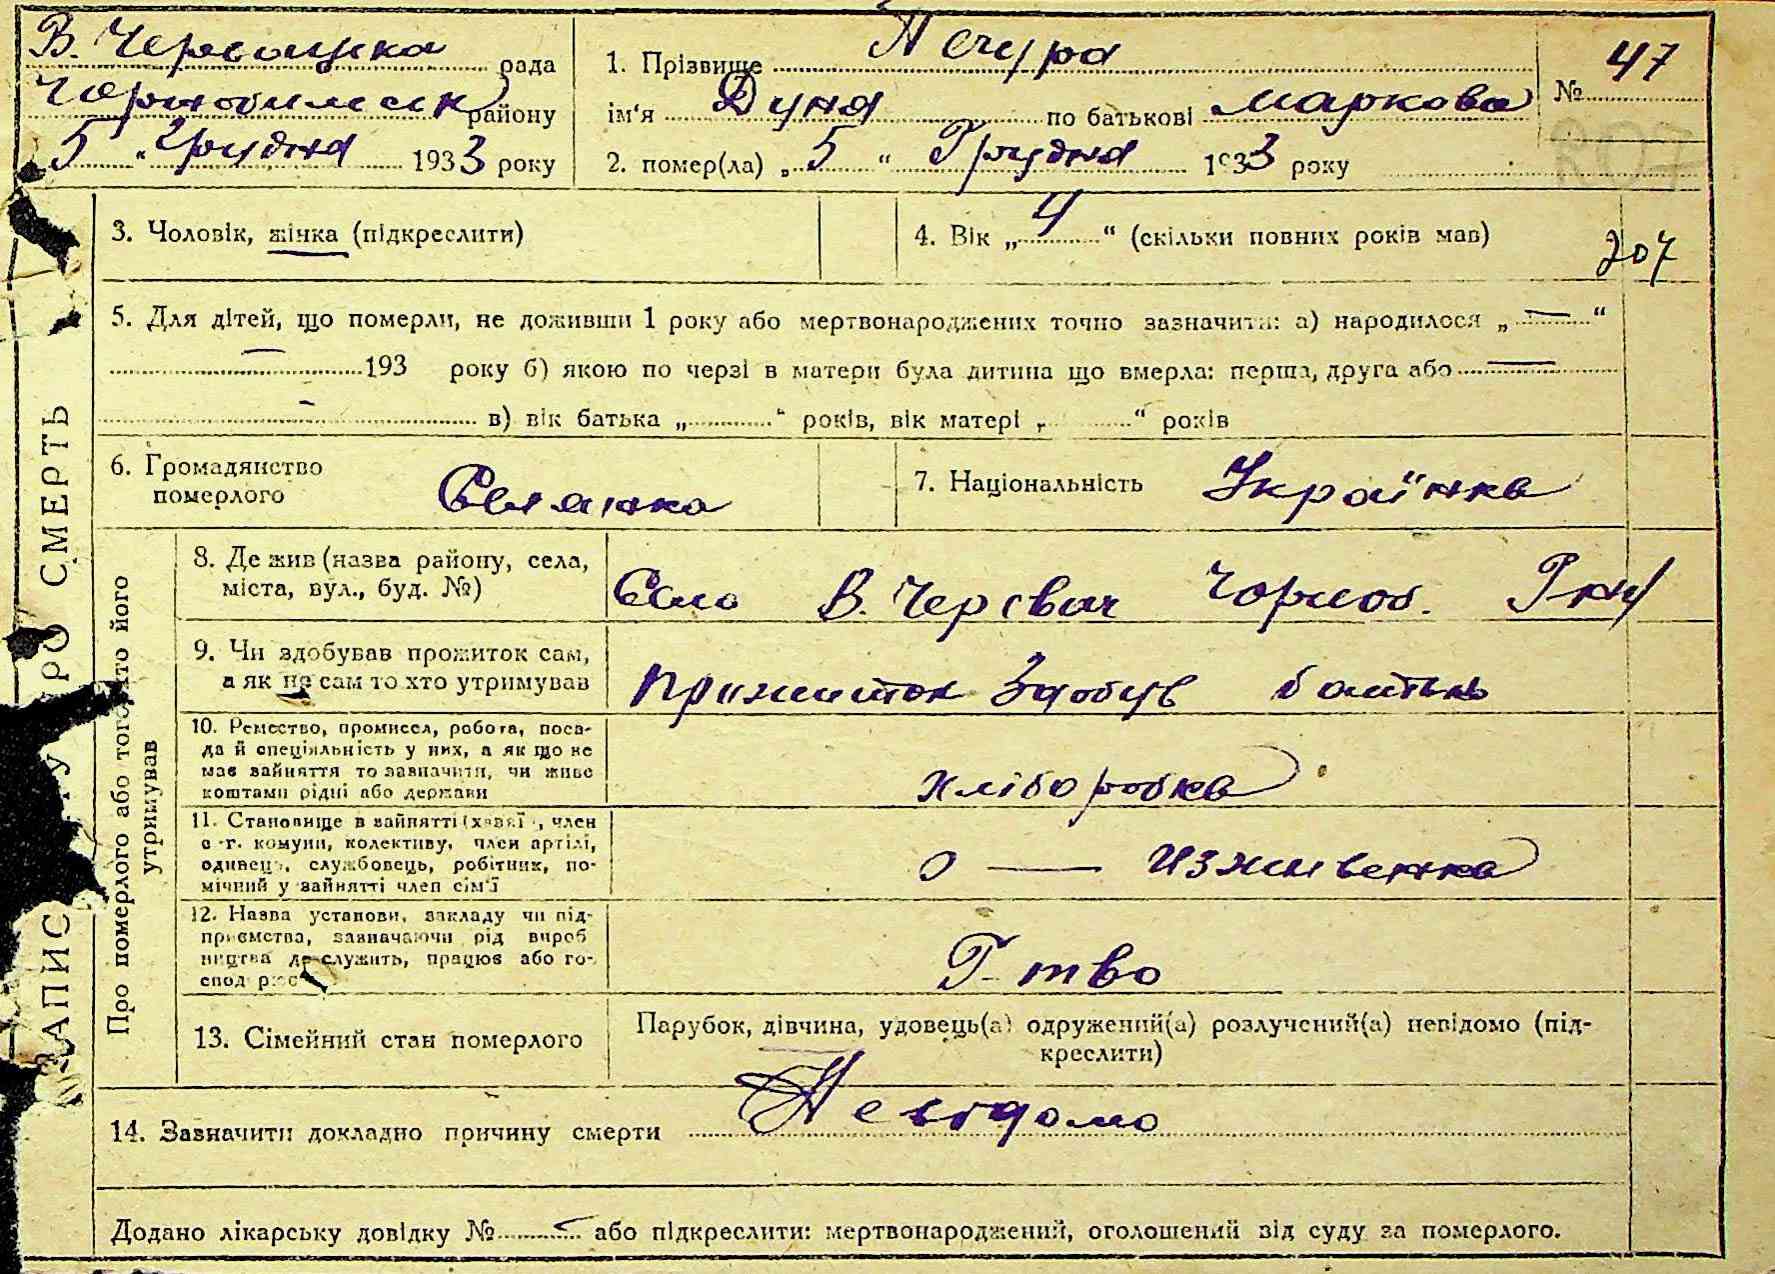 В. Черевацька рада
Чорнобильськ району
5 " Грудня 1933 року
1. Прізвище Печура
ім'я Дуня по батькові Маркова
2. помер(ла) „ 5 “ Грудня 1933 року
№ 47
207
3. Чоловік, жінка (підкреслити)
4. Вік „ 4 “ (скільки повних років мав)
207
5. Для дітей, що померли, не доживши 1 року або мертвонароджених точно зазначити: а) народилося „ — “
— 193 року б) якою по черзі в матери була дитина що вмерла: перша, друга або —
— в) вік батька „ “ років, вік матері „ “ років
6. Громадянство
померлого
Селянка
7. Національність Українка
ЗАПИС ПРО СМЕРТЬ
Про померлого або того хто його
утримував
8. Де жив (назва району, села,
міста, вул., буд. №)
Село В. Черевач Чорноб. Р-ну
9. Чи здобував прожиток сам,
а як не сам то хто утримував
Прижиток Здобув батько
10. Ремество, промисел, робота, поса-
да й спеціяльність у них, а як що не
має зайняття то зазначити, чи живе
коштами рідні або держави
хліборобка
11. Становище в зайнятті (хазяї , член
с-г. комуни, колективу, член артілі,
одинець, службовець, робітник, по-
мічний у зайнятті член сім'ї
о — изживенка
12. Назва установи, закладу чи під-
приємства, зазначаючи рід вироб
ництва де служить, працює або го-
спод рює
Г-тво
13. Сімейний стан померлого
Парубок, дівчина, удовець(а) одружений(а) розлучений(а) невідомо (під-
креслити)
14. Зазначити докладно причину смерти Невідомо
Додано лікарську довідку № — або підкреслити: мертвонароджений, оголошений від суду за померлого.